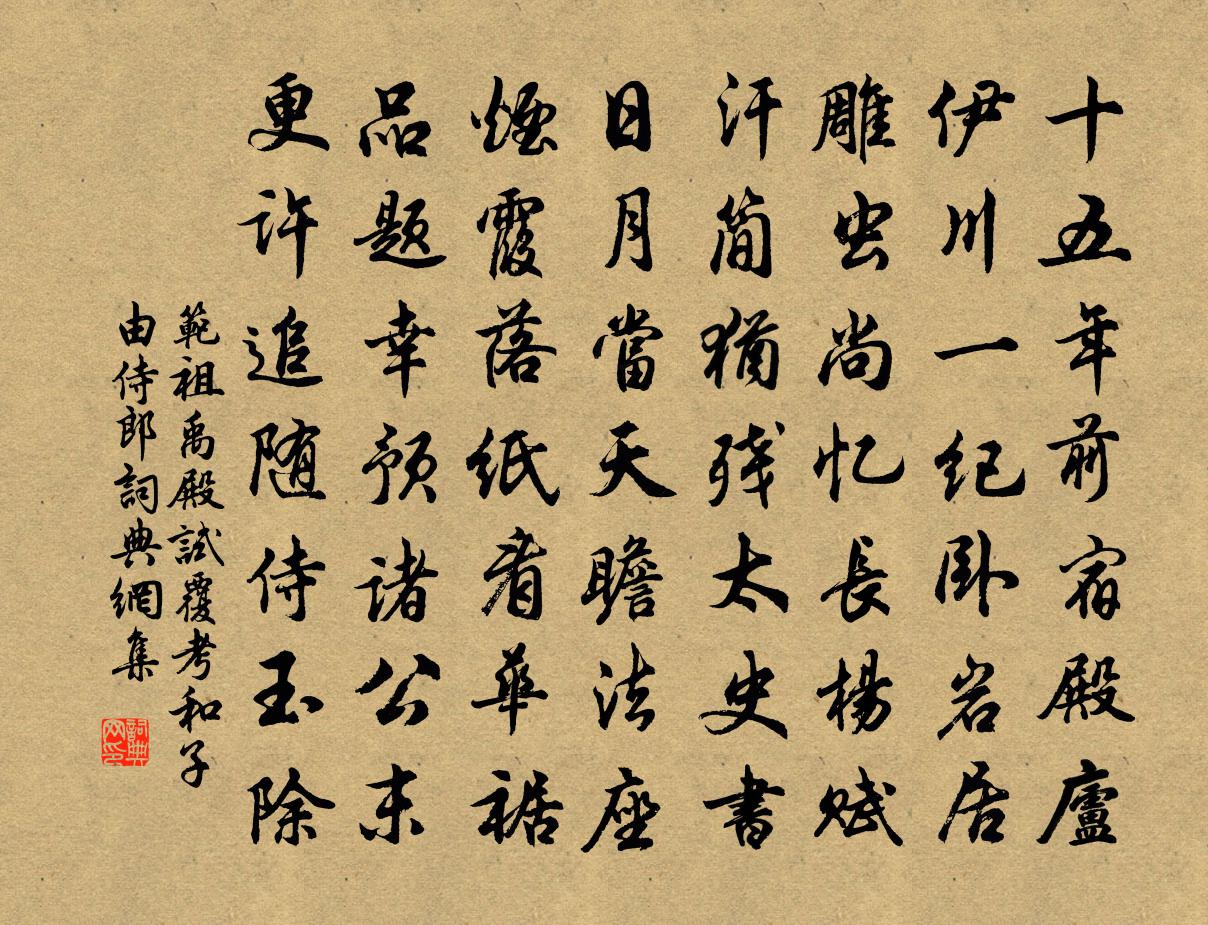 十五年前宿殿廬
伊川一纪卧岩居
雕虫尚忆長楊赋
汗简猶残太史書
日月當天瞻法座
煙霞落紙看華裾
品题幸预诸公末
更许追随侍玉除
範祖禹殿試覆考和子
由侍郎詞典網集
詞典网印